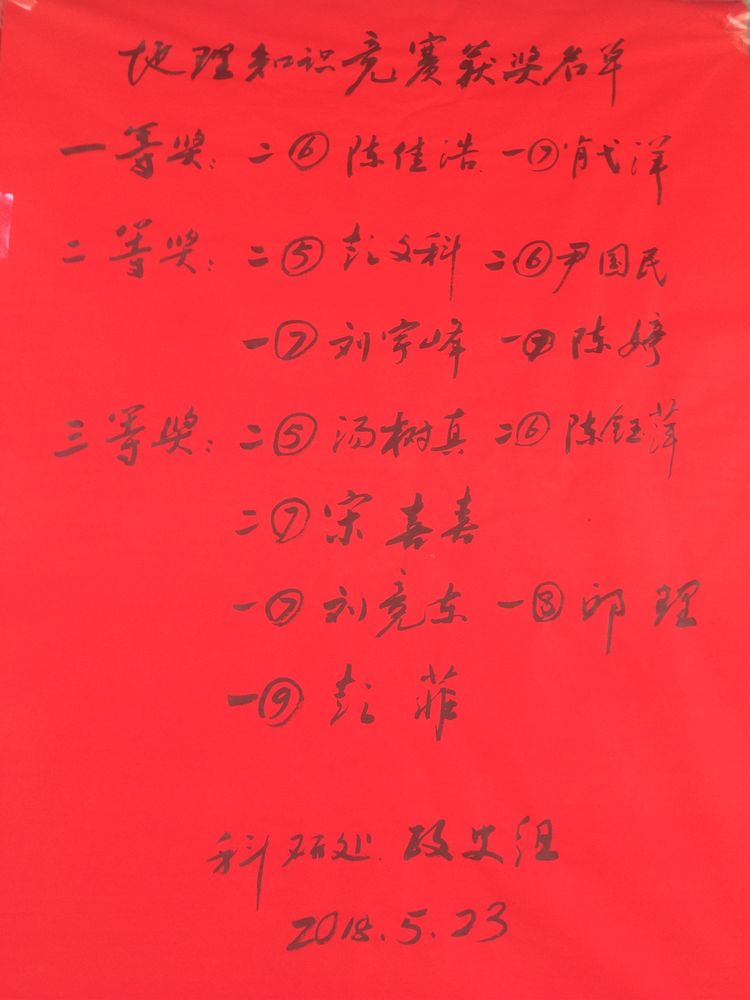 地理知识竞赛获奖名单
一等奖：二⑥陈佳浩 一⑦肖弋洋
二等奖：二⑤彭文科 二⑥尹国民
一⑦刘宇峰 一⑦陈婷
三等奖：二⑤汤树真 二⑥陈钰萍
二⑦宋喜春
一⑦刘竞东 一⑧邱理
一⑨彭菲
科研处 政史组
2018.5.23